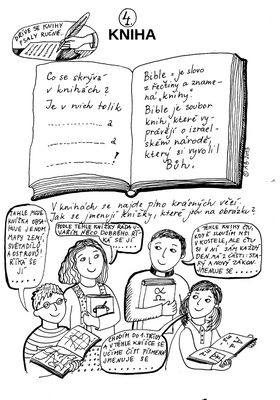 DŘÍVE SE KNIHY
PSALY RUČNĚ.
4
KNIHA
Co se skrývá
v knihách?
Je v nich tolik
a
!
Bible = je slovo
z řečtiny a zname-
ná „knihy".
Bible je soubor
knih, které vy-
právějí o izrael-
ském národě,
který si vyvolil
Bůh.
V knihách se najde plno krásných věcí.
Jak se jmenují knížky, které jsou na obrázku?
TAHLE MOJE
KNÍŽKA OBSA-
HUJE JENOM
MAPY ZEMÍ,
SVĚTADÍLŮ
A OSTROVŮ.
ŘÍKÁ SE
JÍ...
PODLE TÉHLE KNÍŽKY RÁDA U-
VAŘÍM NĚCO DOBRÉHO. ŘÍ-
KÁ SE JÍ
Z TÉHLE KNIHY ČTU,
KDYŽ SLOUŽÍM MŠI
V KOSTELE, ALE ČTU
SI V NÍ SÁM KAŽDÝ
DEN. MÁ 2 ČÁSTI: STA-
RÝ A NOVÝ ZÁKON.
JMENUJE SE...
CHODÍM DO 1. TŘÍDY
A V TÉHLE KNÍŽCE SE
UČÍME ČÍST PÍSMENA.
JMENUJE SE